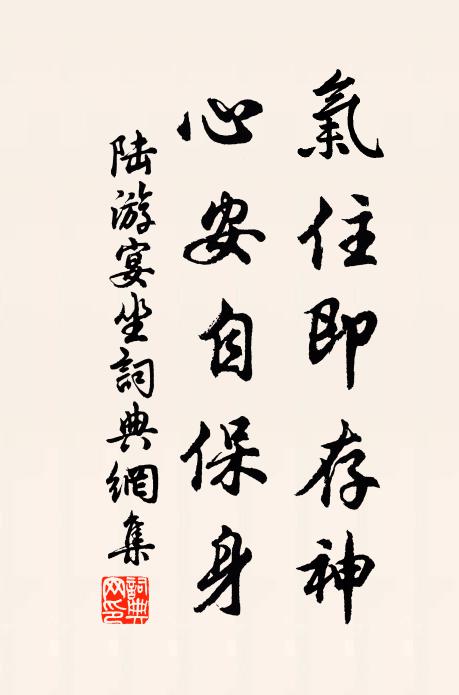 氣住即存神
心安自保身
陆游宴坐詞典網集
詞典网印